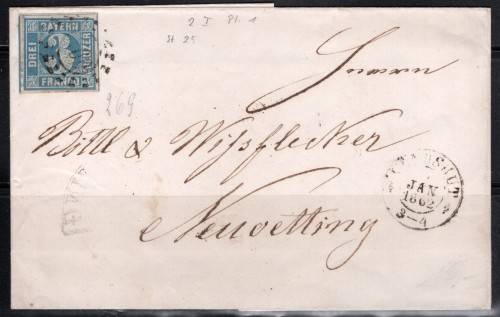 BAYERN
DREI
KREUZER
FRANCO
2 I Pl. 1
St. 25
269
Bittl & Wissflecker
Neuoetting
LANDSHUT
JAN
1862
3–4